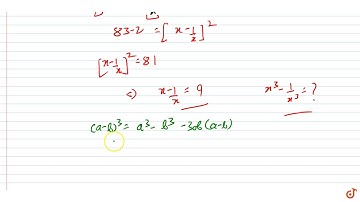 83-2 = [x-1/x]²
[x-1/x]² = 81
⇔ x-1/x = 9 x³-1/x³ = ?
(a-b)³ = a³-b³-3ab(a-b)